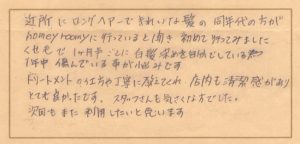 近所にロングヘアーできれいな髪の同年代の方が
honey roomyに行っていると聞き 初めて行ってみました
くせ毛で1ヶ月半ごとに白髪染めを自分でしている為
1年中 傷んでいる事が悩みです
トリートメントの仕方や丁寧に教えてくれ 店内も清潔感があり
とても良かったです。スタッフさんも気さくな方でした。
次回もまた利用したいと思います